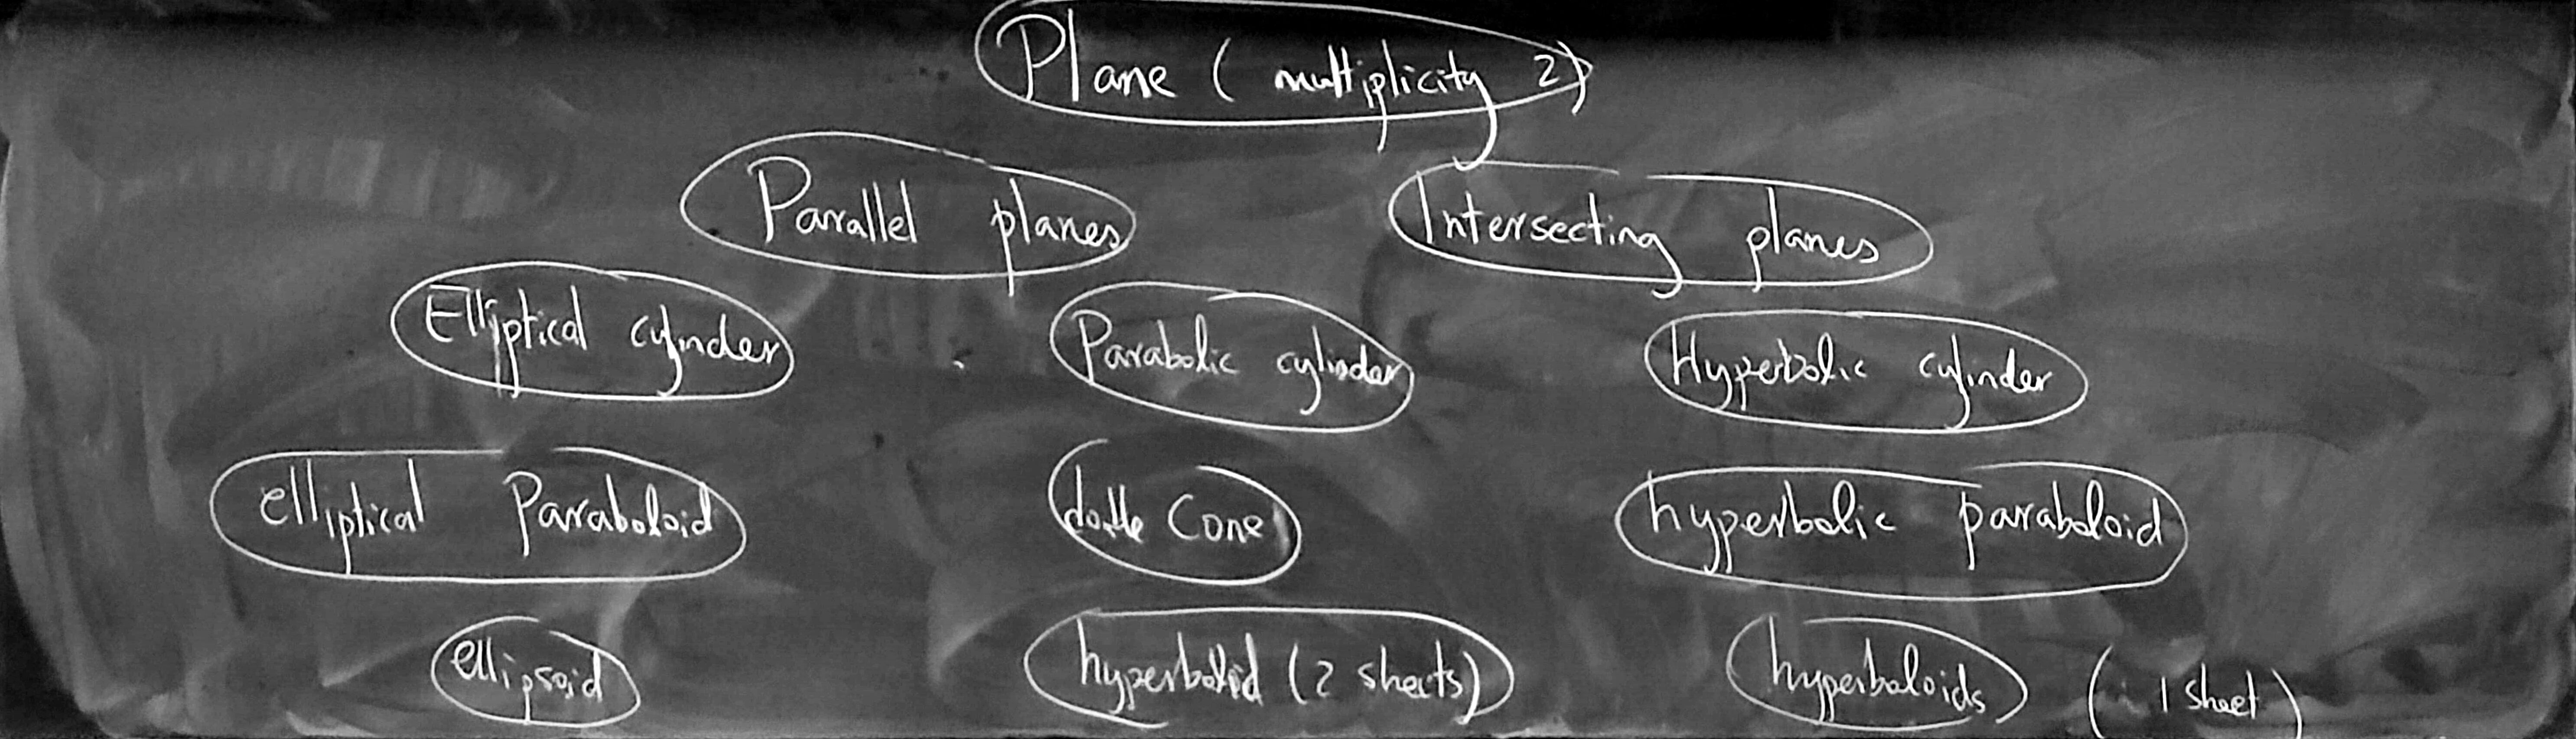 Plane ( multiplicity 2)
Parallel planes Intersecting planes
Elliptical cylinder Parabolic cylinder Hyperbolic cylinder
elliptical Paraboloid double Cone hyperbolic paraboloid
ellipsoid hyperboloid (2 sheets) hyperboloids ( 1 sheet )